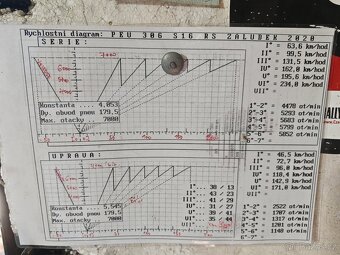 Rychlostni diagram: PEU 306 S16 RS ZALUDEK 2020
SERIE:
7000
I° = 63,6 km/hod
II° = 99,5 km/hod
III° = 131,5 km/hod
IV° = 162,0 km/hod
V° = 195,6 km/hod
VI° = 234,0 km/hod
Konstanta .... 4,053
Dy. obvod pneu 179,5
Max. otacky 7000
1°-2° = 4478 ot/min
2°-3° = 5293 ot/min
3°-4° = 5683 ot/min
4°-5° = 5799 ot/min
5°-6° = 5852 ot/min
6°-7° =
UPRAVA:
I° = 46,5 km/hod
II° = 72,7 km/hod
III° = 96,0 km/hod
IV° = 118,4 km/hod
V° = 142,9 km/hod
VI° = 171,0 km/hod
I° ... 38 / 13
II° ... 43 / 23
III° ... 41 / 29
IV° ... 31 / 27
V° ... 39 / 41
VI° ... 35 / 44
VII° ...
Konstanta .... 5,545
Dy. obvod pneu 179,5
Max. otacky 7000
1°-2° = 2522 ot/min
2°-3° = 1707 ot/min
3°-4° = 1317 ot/min
4°-5° = 1201 ot/min
5°-6° = 1148 ot/min
6°-7° =